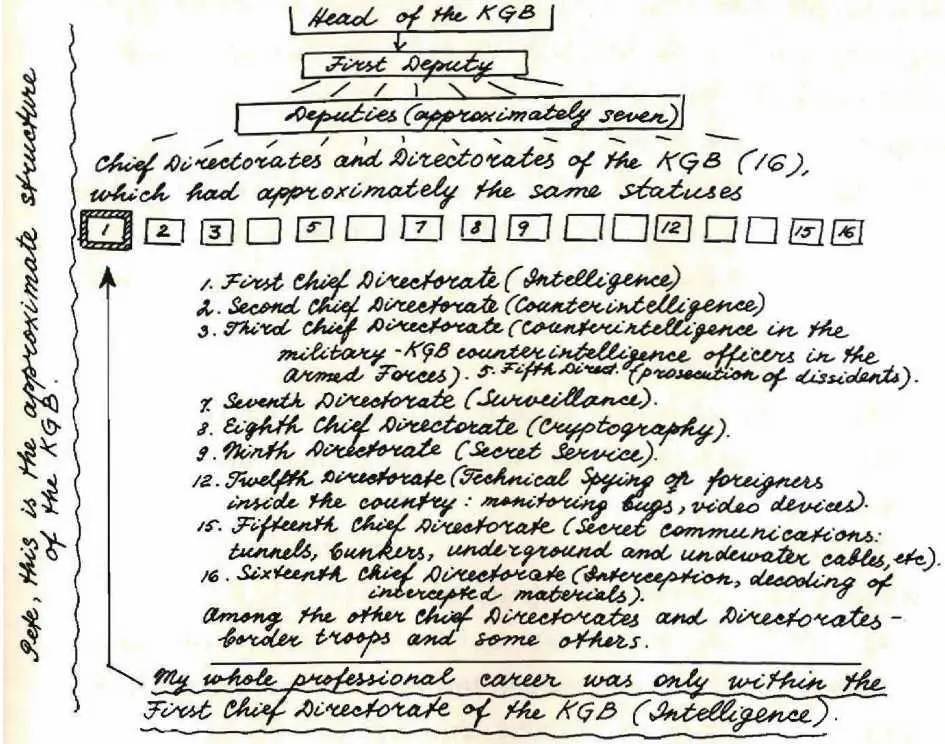 Head of the KGB
First Deputy
Deputies (approximately seven)
Chief Directorates and Directorates of the KGB (16),
which had approximately the same statuses
1 2 3 5 7 8 9 12 15 16
1. First Chief Directorate (Intelligence)
2. Second Chief Directorate (Counterintelligence)
3. Third Chief Directorate (Counterintelligence in the
military - KGB counterintelligence officers in the
Armed Forces). 5. Fifth Direct. (prosecution of dissidents).
7. Seventh Directorate (Surveillance).
8. Eighth Chief Directorate (Cryptography).
9. Ninth Directorate (Secret Service).
12. Twelfth Directorate (Technical Spying on foreigners
inside the country: monitoring bugs, video devices).
15. Fifteenth Chief Directorate (Secret communications:
tunnels, bunkers, underground and undewater cables, etc).
16. Sixteenth Chief Directorate (Interception, decoding of
intercepted materials).
Among the other Chief Directorates and Directorates -
border troops and some others.
My whole professional career was only within the
First Chief Directorate of the KGB (Intelligence).
Pete, this is the approximate structure
of the KGB.